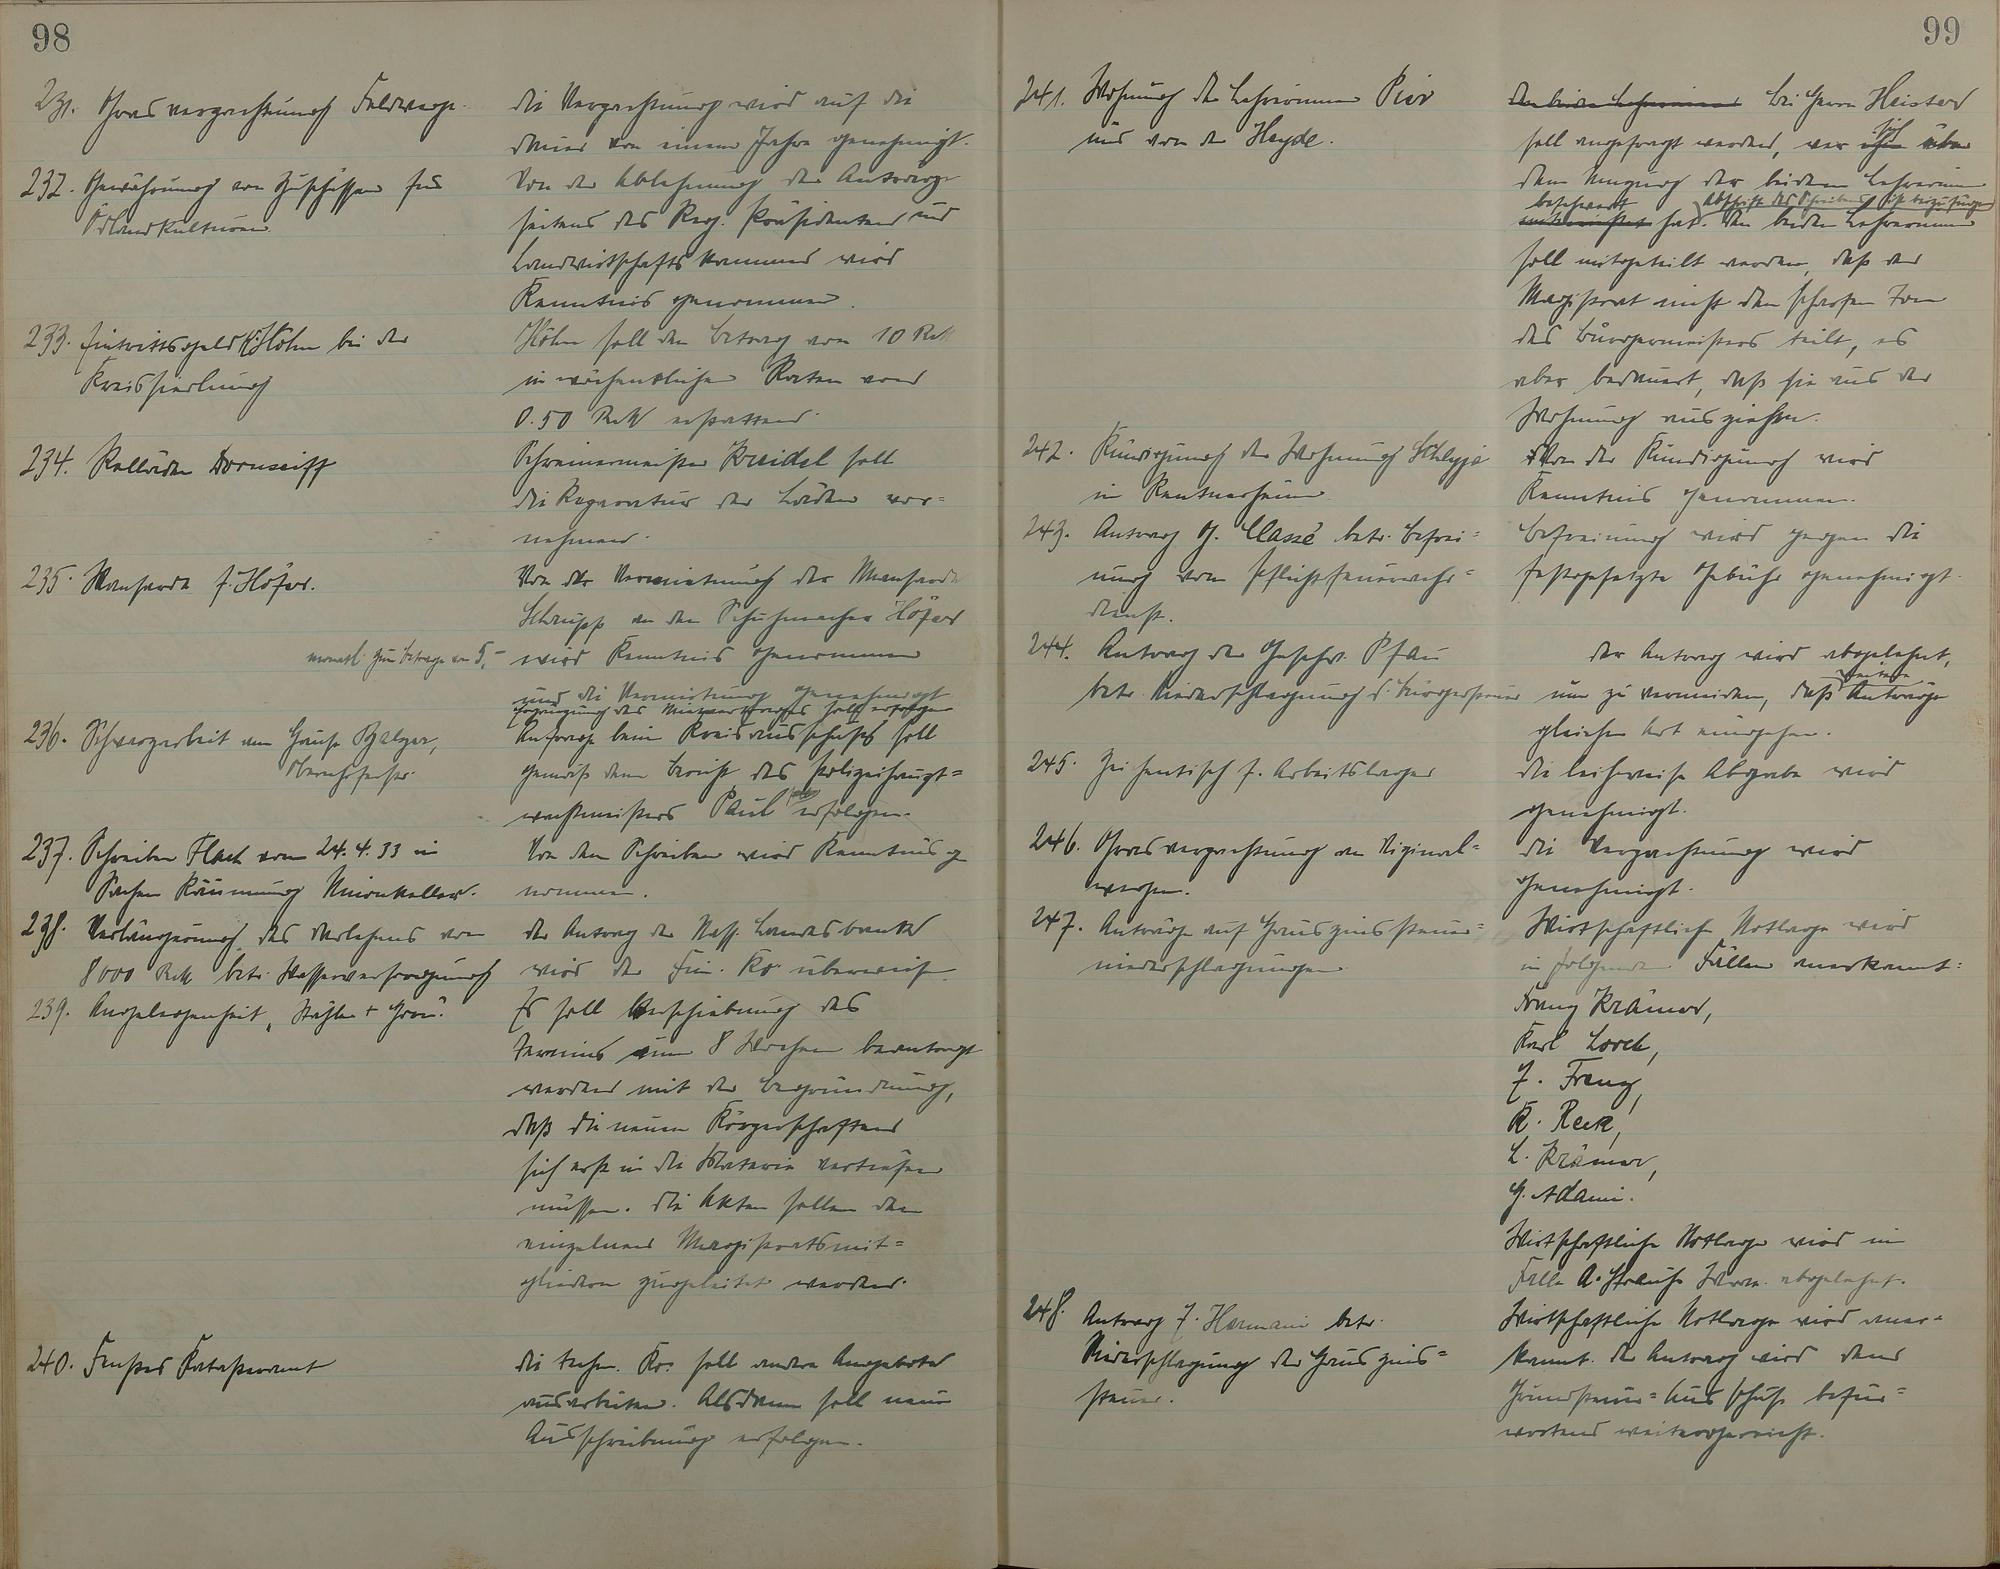 98
231. Grasverpachtung Feldwege.
Die Verpachtung wird auf die
Dauer von einem Jahre genehmigt.
232. Gewährung von Zuschüssen für
Ödlandkulturen
Von der Ablehnung der Anträge
seitens des Reg. Präsidenten und
Landwirtschaftskammer wird
Kenntnis genommen.
233. Eintrittsgeld K. Höhn bei der
Kreissiedlung
Höhn soll den Betrag von 10 RM
in wöchentlichen Raten von
0.50 RM erstatten.
234. Rolläden Dornseiff
Schreinermeister Kreidel soll
die Reparatur der Läden vor=
nehmen.
235. Mansarde f. Höfer.
Von der Vermietung der Mansarde
Schrupp an den Schuhmacher Höfer
monatl. zum Betrage von 5,–
wird Kenntnis genommen
und die Vermietung genehmigt
des Mietvertrages soll erfolgen
236. Schwarzarbeit am Hause Balzer,
Bahnhofstr.
Anfrage beim Kreisausschuß soll
gemäß dem Bericht des Polizeihaupt=
wachtmeisters Paul erfolgen.
237. Schreiben Flach vom 24.4.33 in
Sachen Räumung Unionkeller.
Von dem Schreiben wird Kenntnis ge
nommen.
238. Verlängerung des Darlehens von
8000 RM betr. Wasserversorgung
Der Antrag der Nass. Landesbank
wird der Fin. Ko. überwiesen
239. Angelegenheit, Stähler + Grau.
Es soll Verschiebung des
Termins um 8 Wochen beantragt
werden mit der Begründung,
daß die neuen Körperschaften
sich erst in die Materie vertiefen
müssen. Die Akten sollen den
einzelnen Magistratsmit=
gliedern zugeleitet werden.
240. Fenster Katasteramt
Die techn. Ko. soll andere Angebote
ausarbeiten. Alsdann soll neue
Ausschreibung erfolgen.
99
241. Wohnung der Lehrerinnen Pior
und von der Heyde.
Den beiden Lehrerinnen bei Herrn Heister
soll angefragt werden, wer sich über
den Umzug der beiden Lehrerinnen
beschwert Abschrift des Schreibens ist beizufügen
hat. Den beiden Lehrerinnen
soll mitgeteilt werden, daß der
Magistrat nicht den scharfen Ton
des Bürgermeisters teilt, es
aber bedauert, daß sie aus der
Wohnung ausziehen.
242. Kündigung der Wohnung
in Rentnerheim
Von der Kündigung wird
Kenntnis genommen.
243. Antrag G. Classé betr. Befrei=
ung vom Pflichtfeuerwehr=
dienst.
Befreiung wird gegen die
festgesetzte Gebühr genehmigt.
244. Antrag der Geschw. Pfau
betr. Niederschlagung d. Bürgersteuer
Der Antrag wird abgelehnt,
um zu vermeiden, daß weitere Anträge
gleicher Art eingehen.
245. Zeichentisch f. Arbeitslager
Die leihweise Abgabe wird
genehmigt.
246. Grasverpachtung an Vizinal=
wegen.
Die Verpachtung wird
genehmigt.
247. Anträge auf Hauszinssteuer=
niederschlagungen
Wirtschaftliche Notlage wird
in folgenden Fällen anerkannt:
Franz Krämer,
Karl Lorch,
J. Franz,
K. Reck,
L. Krämer,
G. Adami.
Wirtschaftliche Notlage wird im
Falle A. Strauß Wwe. abgelehnt.
248. Antrag J. Hermani betr.
Niederschlagung der Hauszins=
steuer.
Wirtschaftliche Notlage wird aner=
kannt. Der Antrag wird dem
Grundsteuer=Ausschuß befür=
wortend weitergereicht.